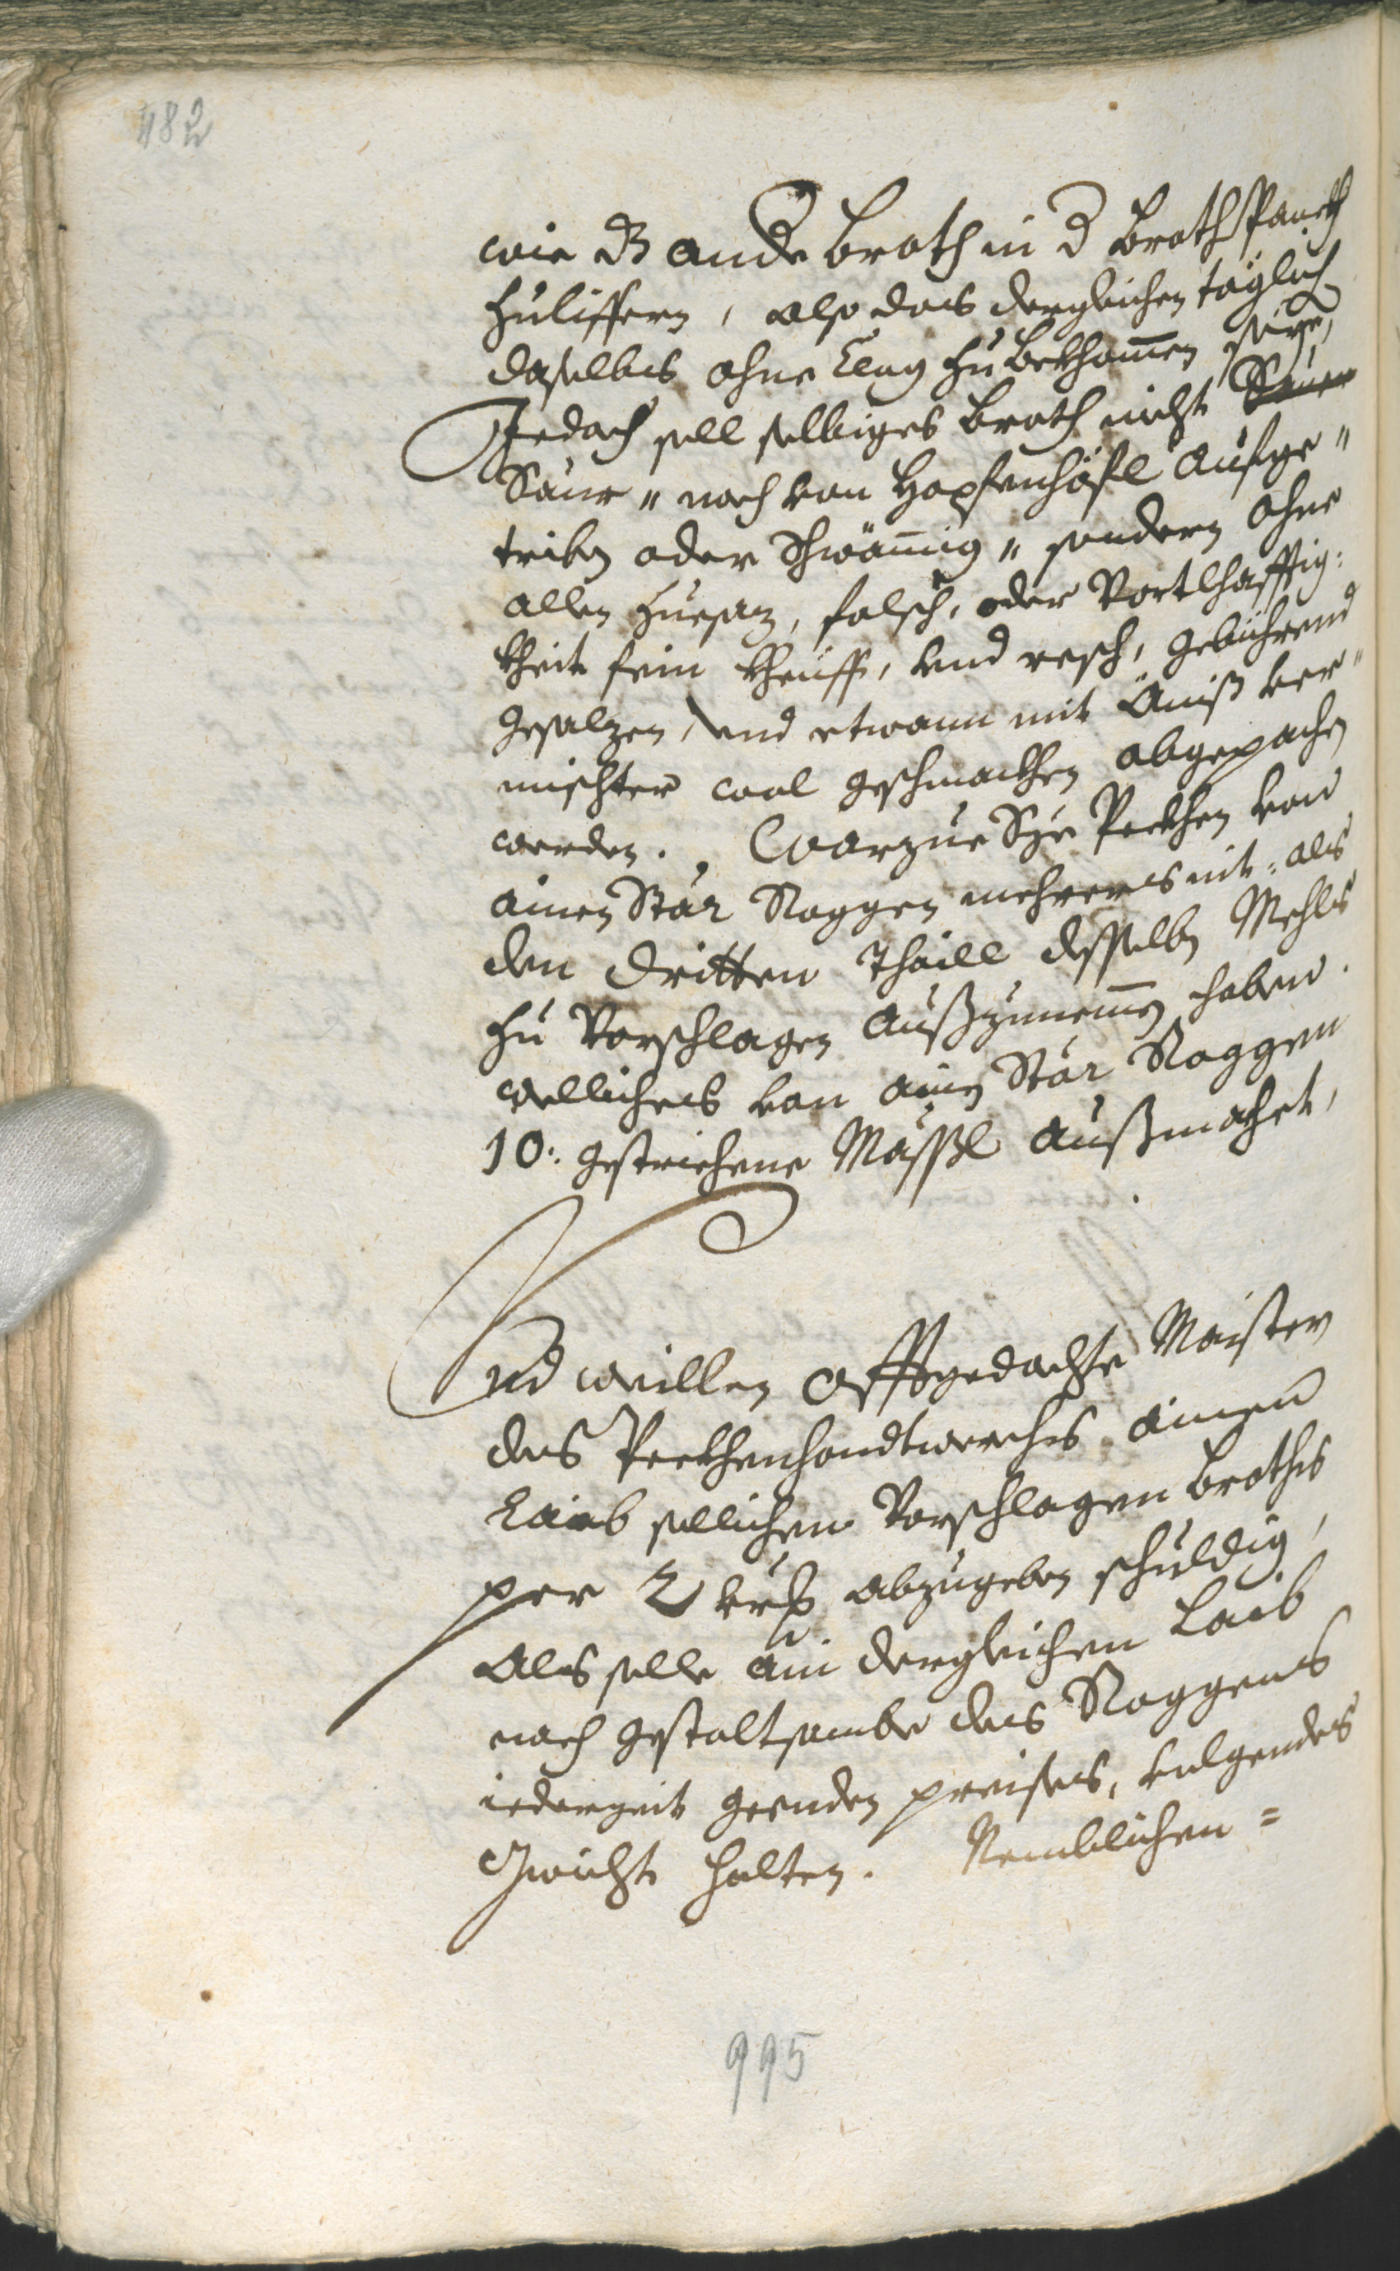 482
wie dz ande Broth in d Brothpanckh
zuliffern, also das dergleichen täglich
daselbs ohne Clag zubekhomen seye,
Jedoch soll selbiges Broth nicht Sauer
Saur " noch von Hopfenhöfl aufge "
triben oder schwämig " sondern ohne
allen Zuesaz, falsch, oder Vortlhafftig:
kheit fein kheüff, vnd resch, gebührend
gesalzen, vnd etwann mit Äniß ver "
mischter wol geschmackhen abgepachen
werden. Warzue Sye Peckhen von
ainen Stär Roggen mehrers nit: als
den dritten Thaill desselben Mehls
zu Vorschlagen Außzunemen haben.
wellches von ainen Stär Roggen
10: gestrichene Mässl außmachet,
Vnd weillen offtgedachte Maister
des Peckhenhandtwerchs ainen
Laib sollichen Vorschlagen Broths
per 2 krz abzugeben schuldig,
Als solle ain dergleichen Laib
nach gestaltsambe des Roggens
iederzeit geenden preises, volgendes
Gwicht halten. Nemblichen =
995